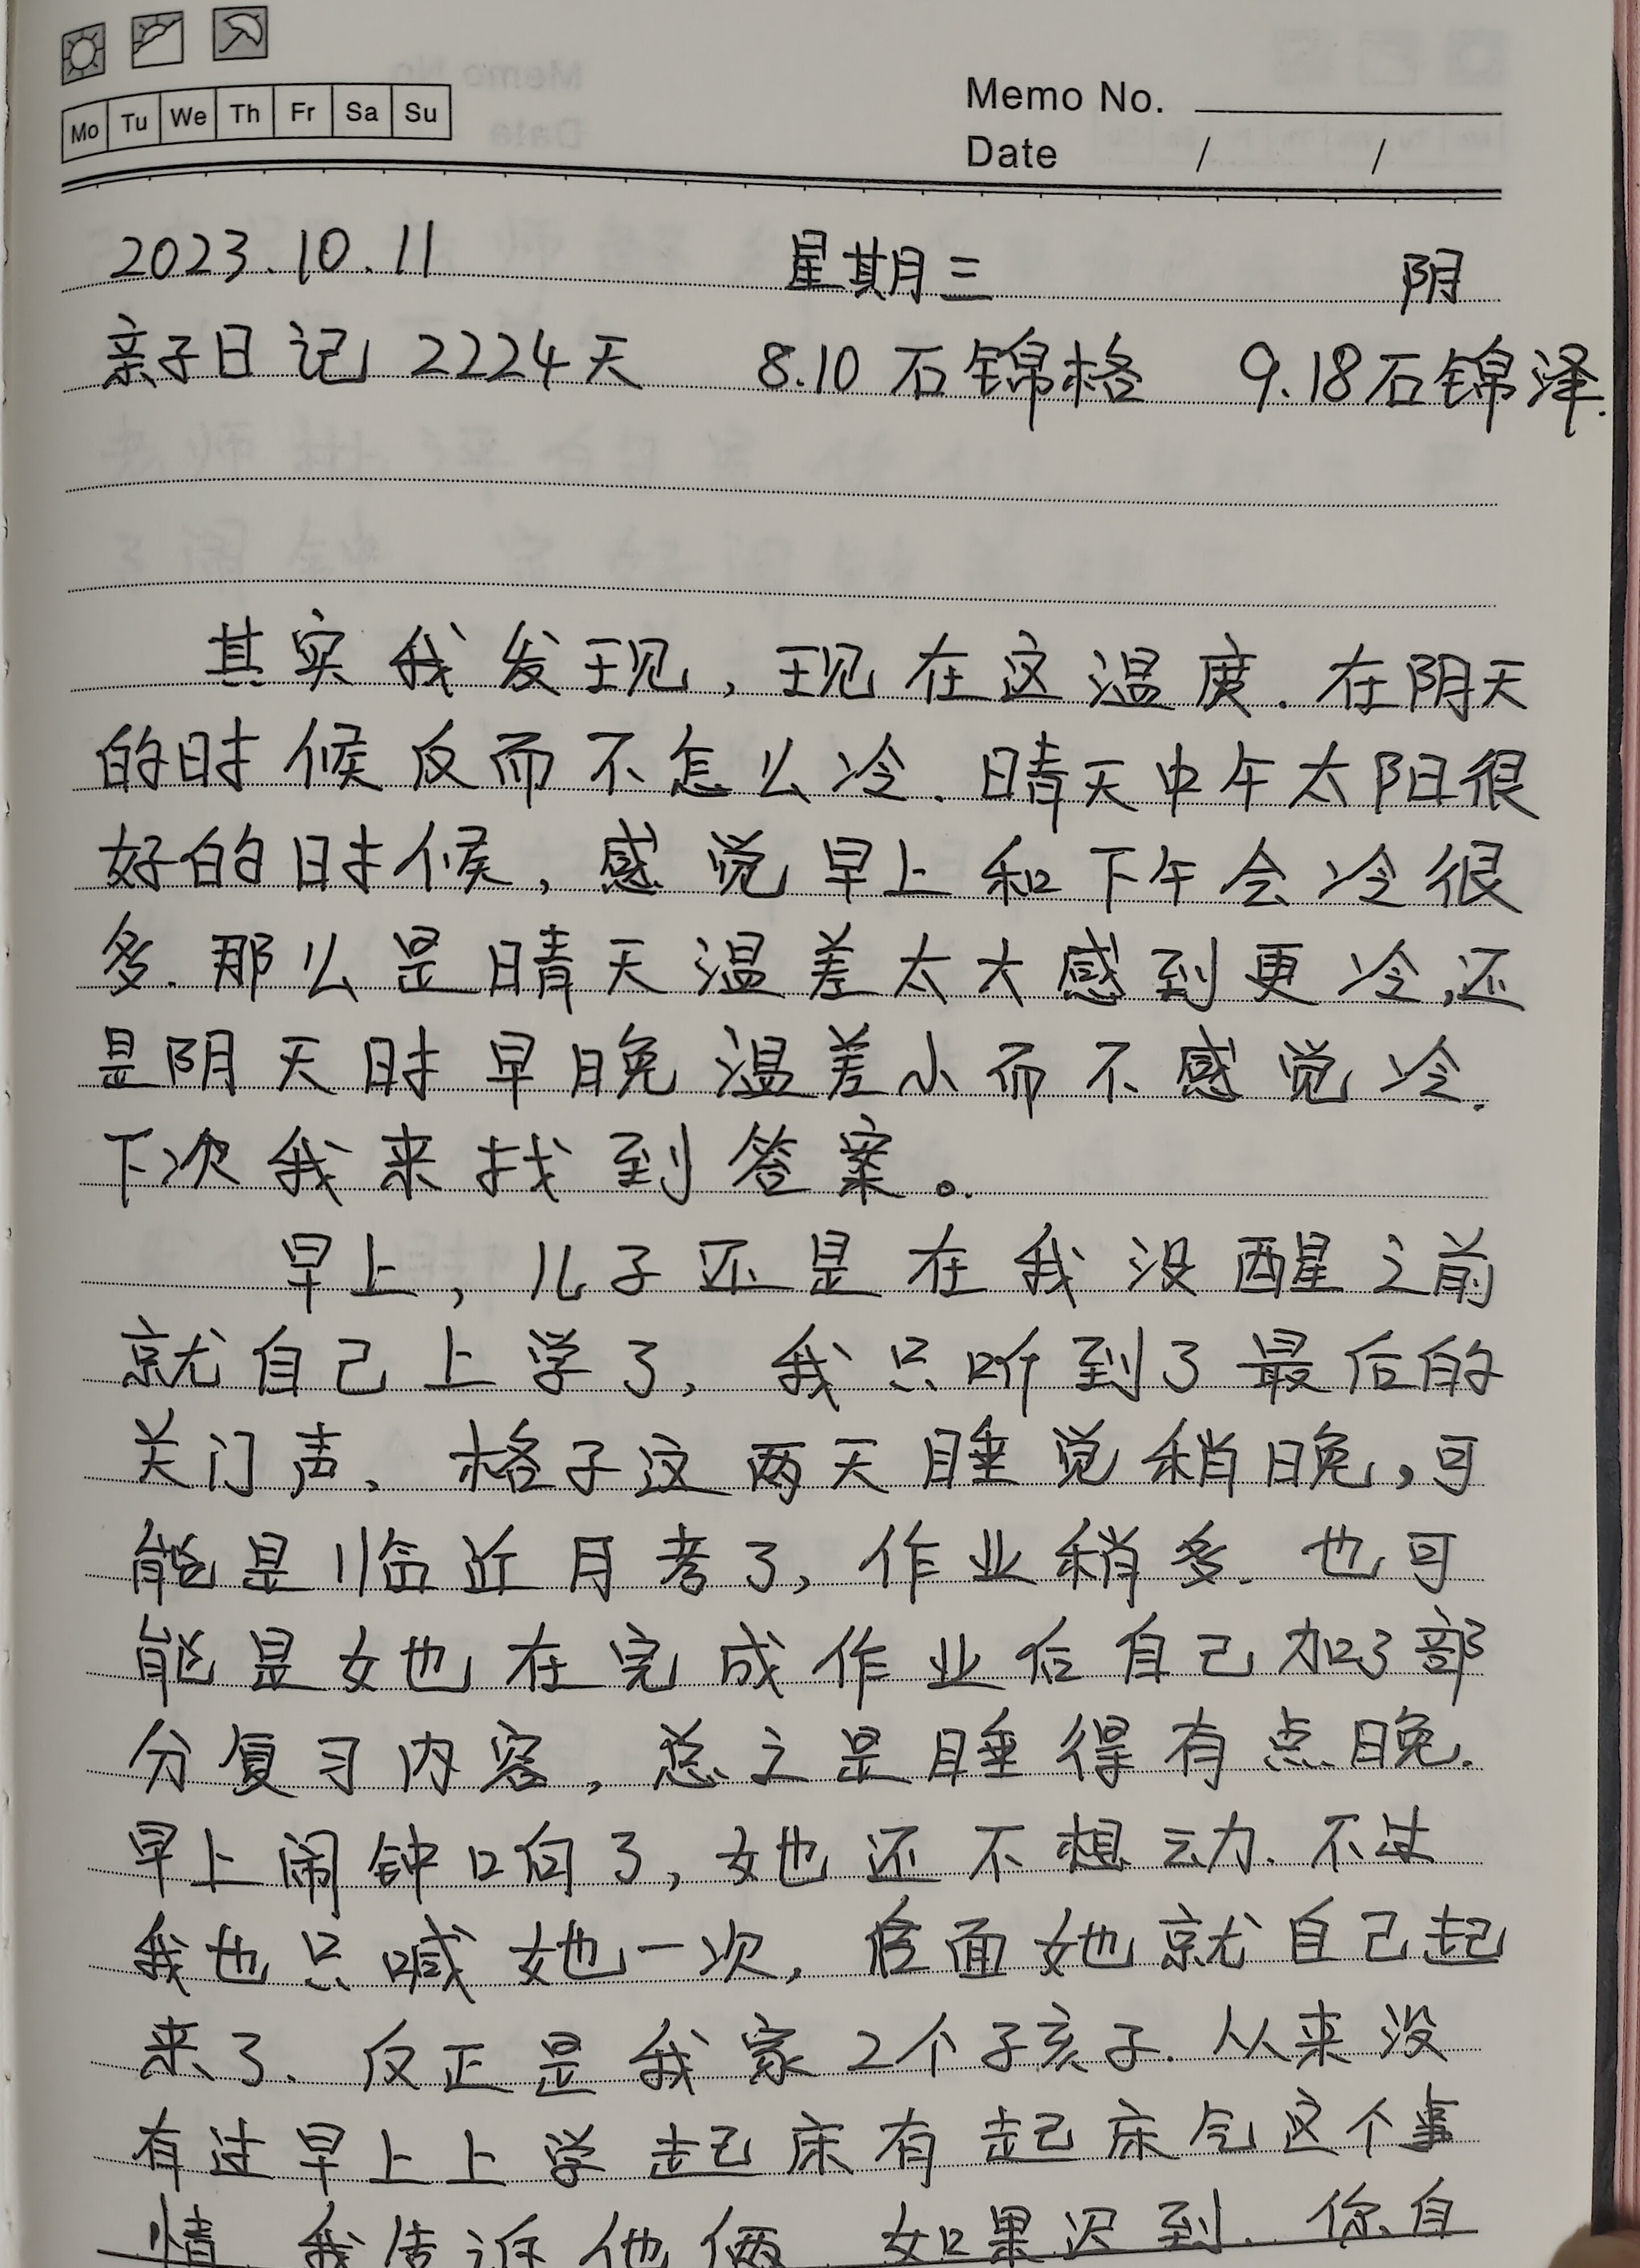 Mo Tu We Th Fr Sa Su
Memo No.
Date / /
2023.10.11 星期三 阴
亲子日记 2224天 8.10石锦格 9.18石锦泽.
其实我发现,现在这温度.在阴天
的时候反而不怎么冷.晴天中午太阳很
好的时候,感觉早上和下午会冷很
多.那么是晴天温差太大感到更冷,还
是阴天时早晚温差小而不感觉冷.
下次我来找到答案。
早上,儿子还是在我没醒之前
就自己上学了,我只听到了最后的
关门声、格子这两天睡觉稍晚,可
能是临近月考了,作业稍多.也可
能是她在完成作业后自己加了部
分复习内容,总之是睡得有点晚.
早上闹钟响了,她还不想动.不过
我也只喊她一次,后面她就自己起
来了、反正是我家2个子孩子.从来没
有过早上上学起床有起床气这个事
情.我告诉他俩.如果迟到.你自